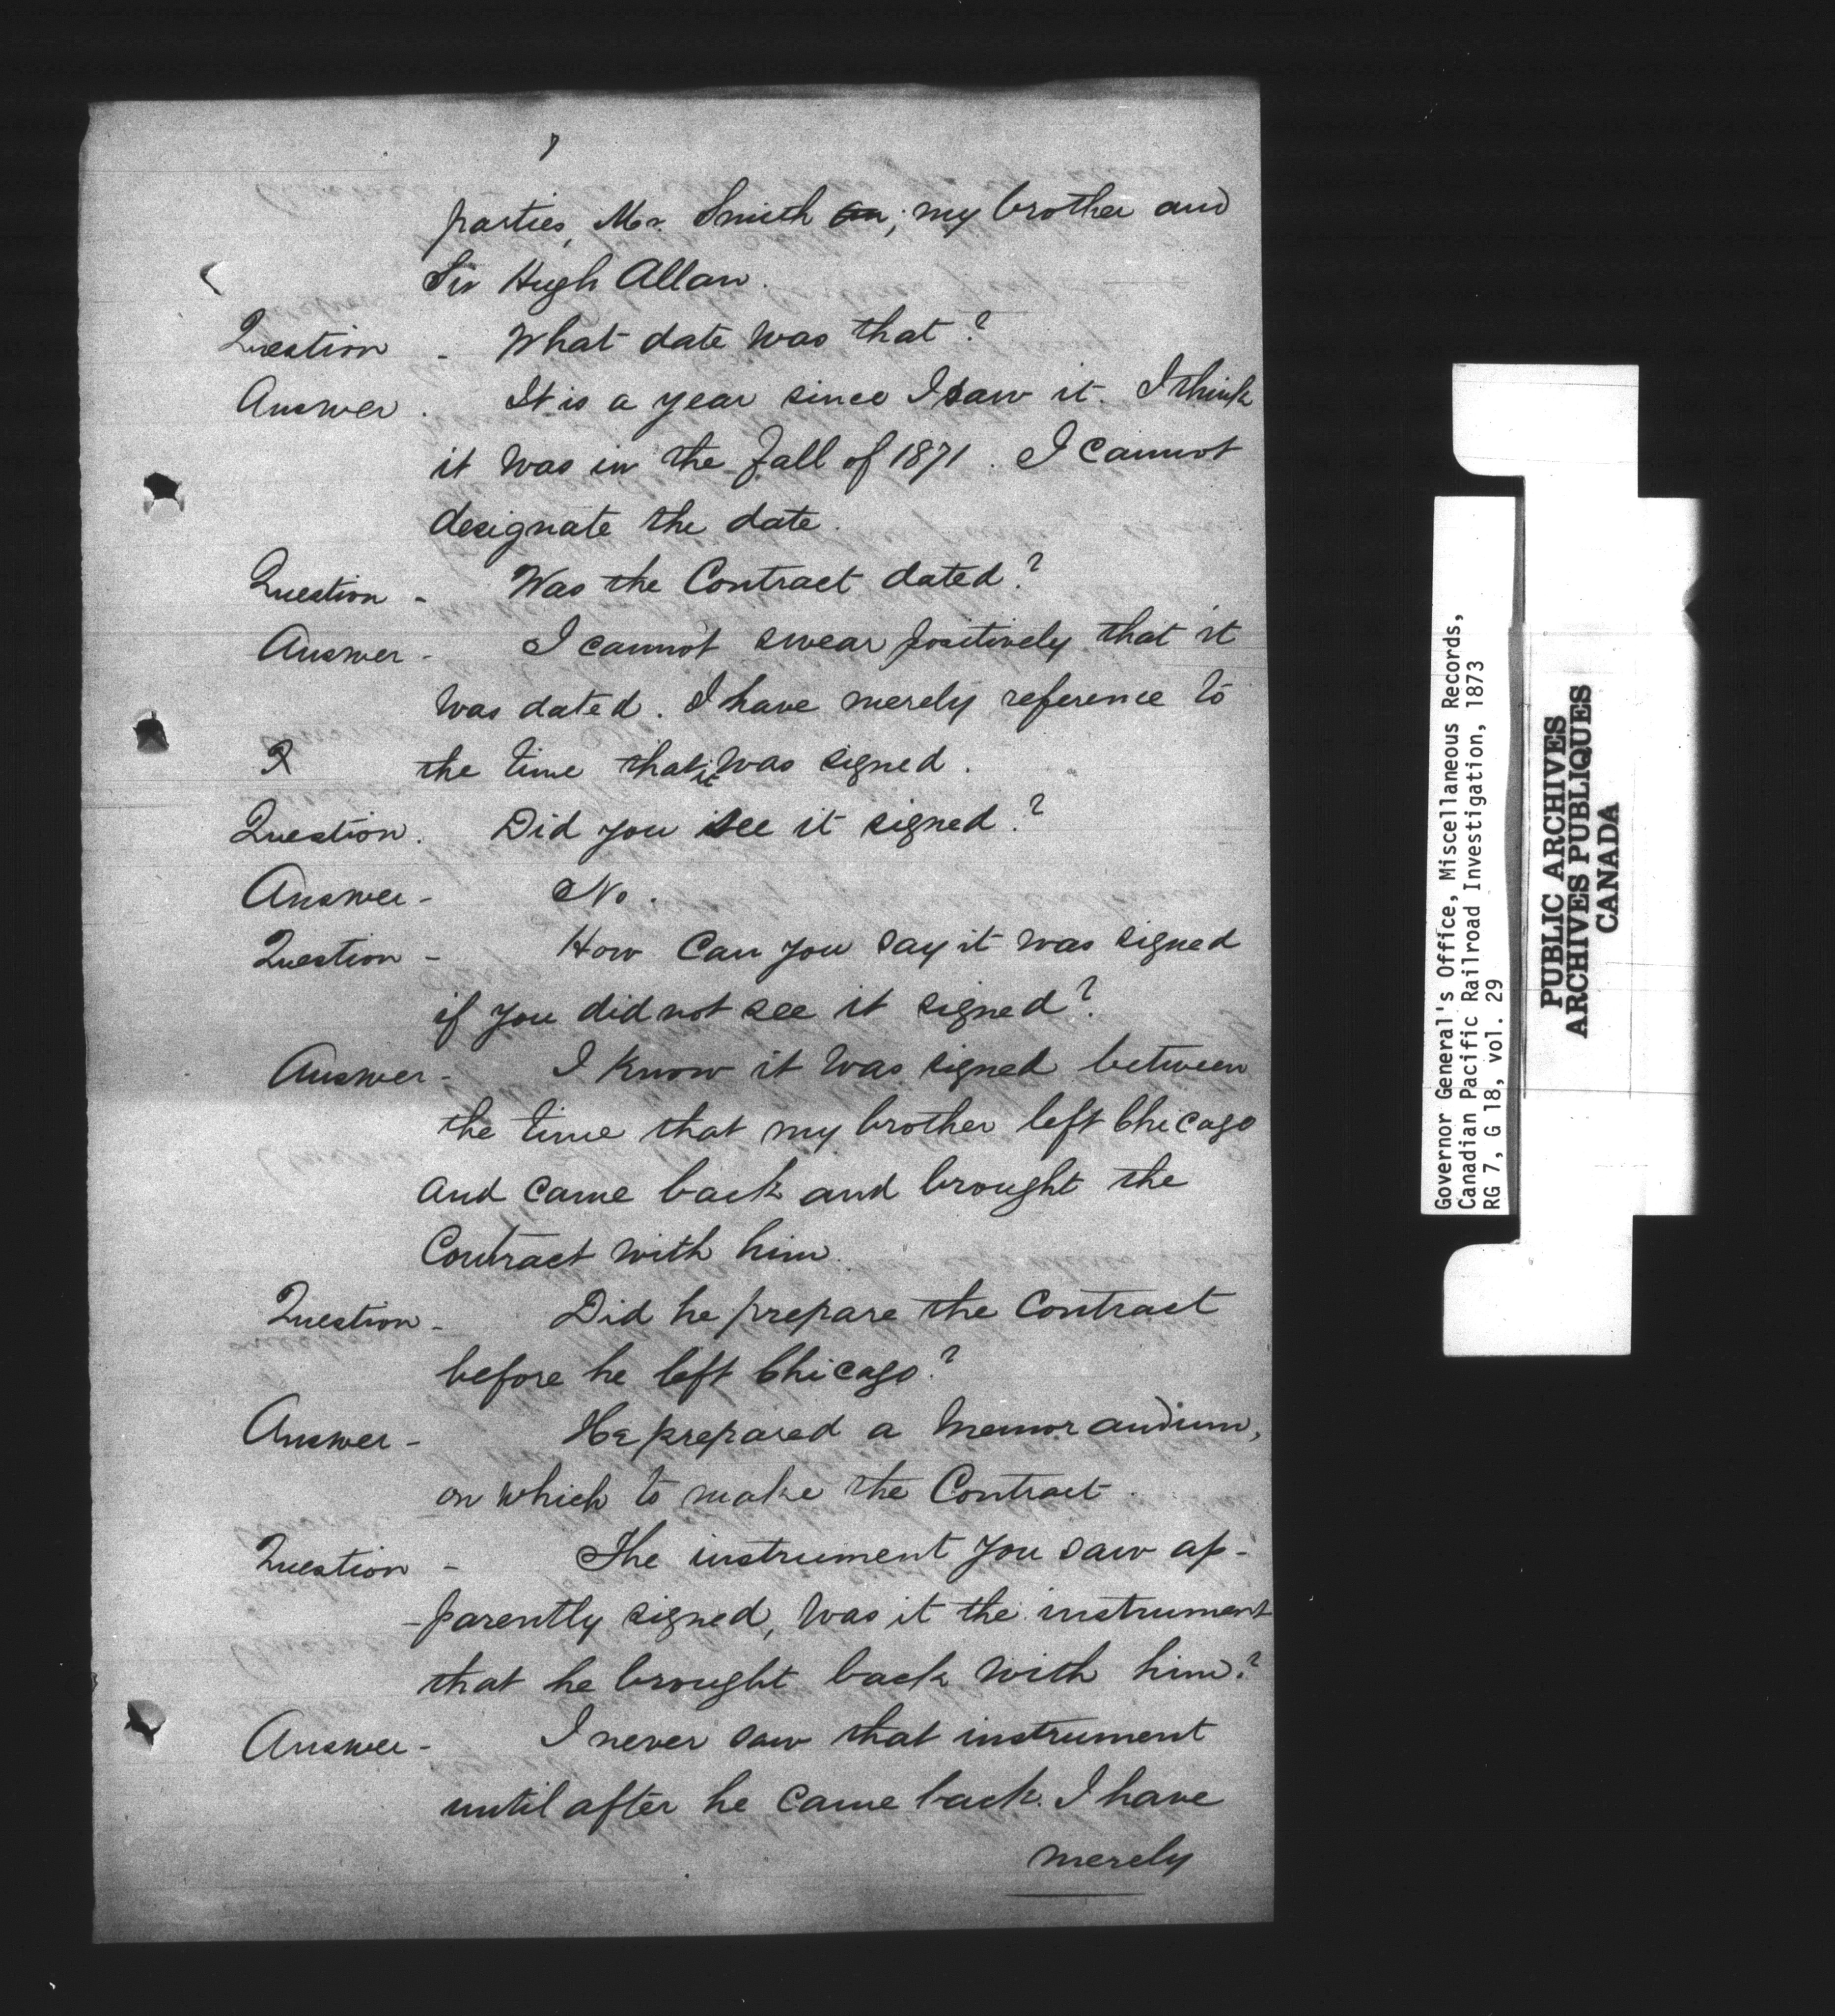 7
parties, Mr. Smith an, my brother and
Sir Hugh Allan.
Question - What date was that?
Answer. It is a year since I saw it. I think
it was in the Fall of 1871. I cannot
designate the date.
Question - Was the Contract dated?
Answer - I cannot swear positively that it
was dated. I have merely reference to
the time that it was signed.
Question. Did you see it signed?
Answer - No.
Question - How Can you say it was signed
if you did not see it signed?
Answer - I know it was signed between
the time that my brother left Chicago
and came back and brought the
Contract with him.
Question - Did he prepare the Contract
before he left Chicago?
Answer - He prepared a memorandum,
on which to make the Contract.
Question - The instrument you saw ap-
-parently signed, was it the instrument
that he brought back with him?
Answer - I never saw that instrument
until after he came back. I have
merely
Governor General's Office, Miscellaneous Records,
Canadian Pacific Railroad Investigation, 1873
RG 7, G 18, vol. 29
PUBLIC ARCHIVES
ARCHIVES PUBLIQUES
CANADA